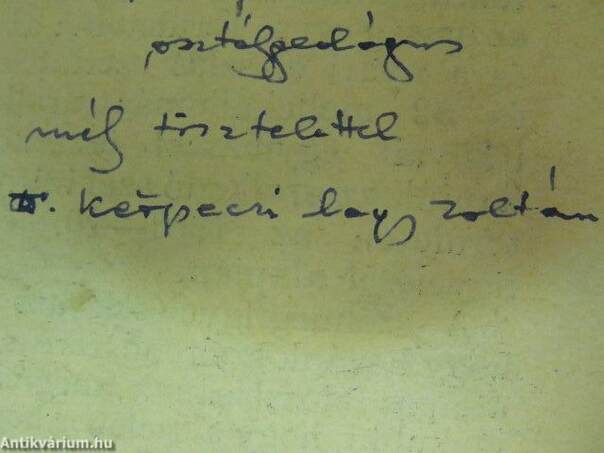 osztálypedagógus
mély tisztelettel
Kerpeczi Nagy Zoltán
Antikvárium.hu